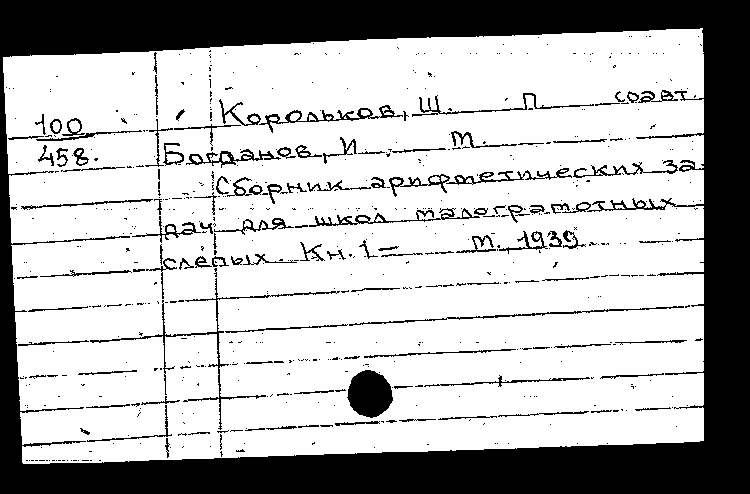 100 Корольков, Ш. П. соавт.
458. Богданов, И. М.
Сборник арифметических за-
дач для школ малограмотных
слепых. Кн. 1 = М., 1939